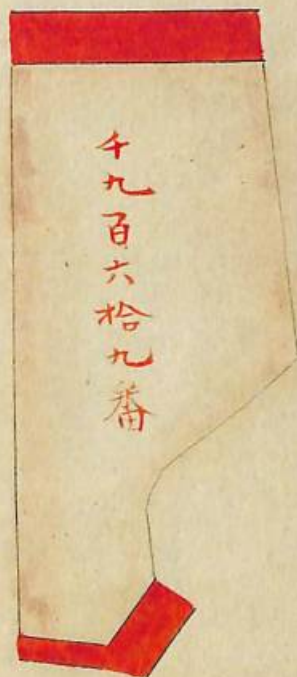 千九百六拾九番